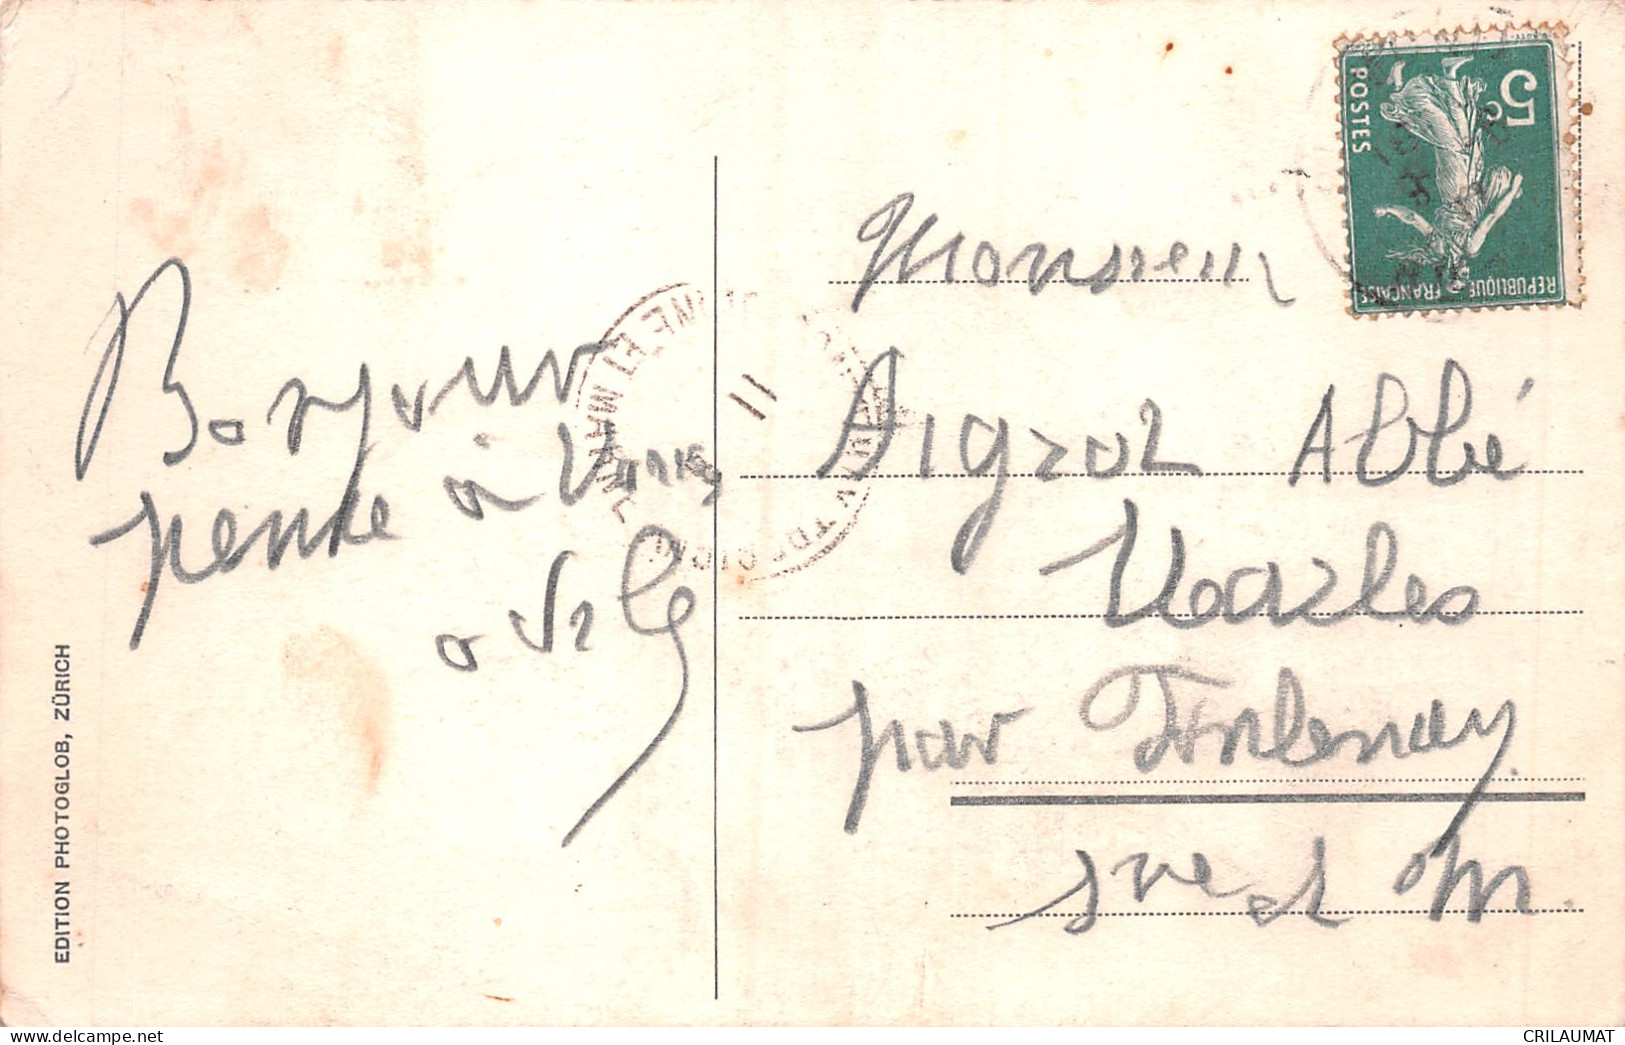 Bonjour
pense à vous
EDITION PHOTOGLOB, ZÜRICH
5c
POSTES
REPUBLIQUE FRANÇAISE
11
Monsieur
Aigrot Abbé
par Fontenay
Sne et M.
CRILAUMAT